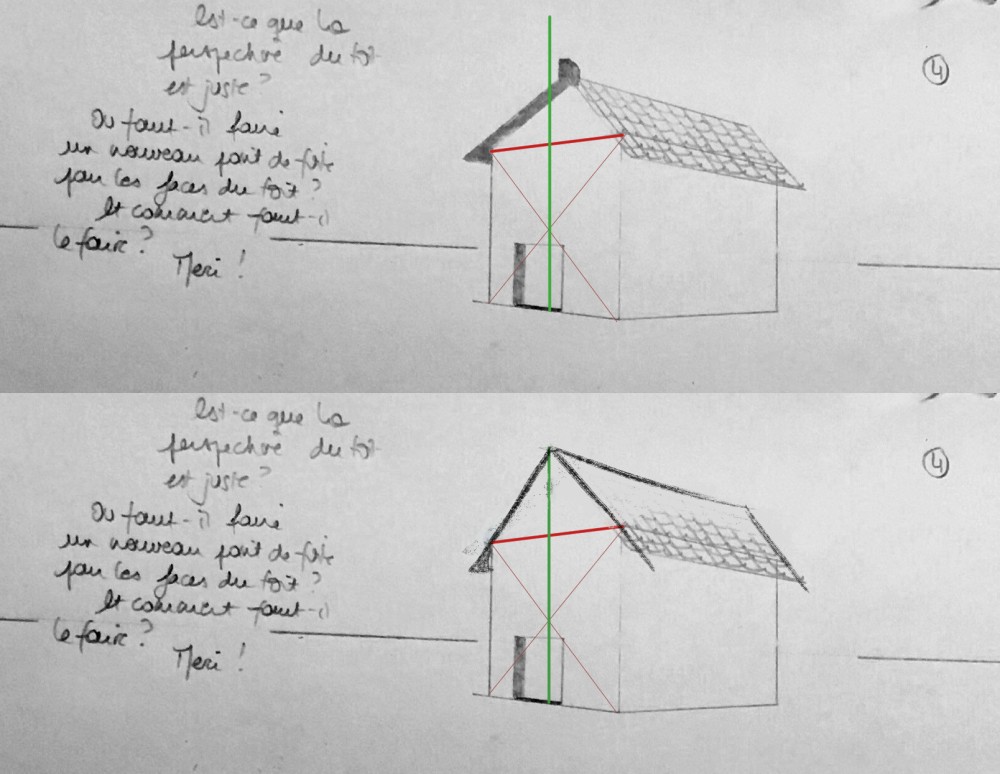 Est-ce que la
perspective du toit
est juste ?
Où faut-il faire
un nouveau point de fuite
pour les faces du toit ?
Et comment faut-il
le faire ?
Merci !
4
Est-ce que la
perspective du toit
est juste ?
Où faut-il faire
un nouveau point de fuite
pour les faces du toit ?
Et comment faut-il
le faire ?
Merci !
4